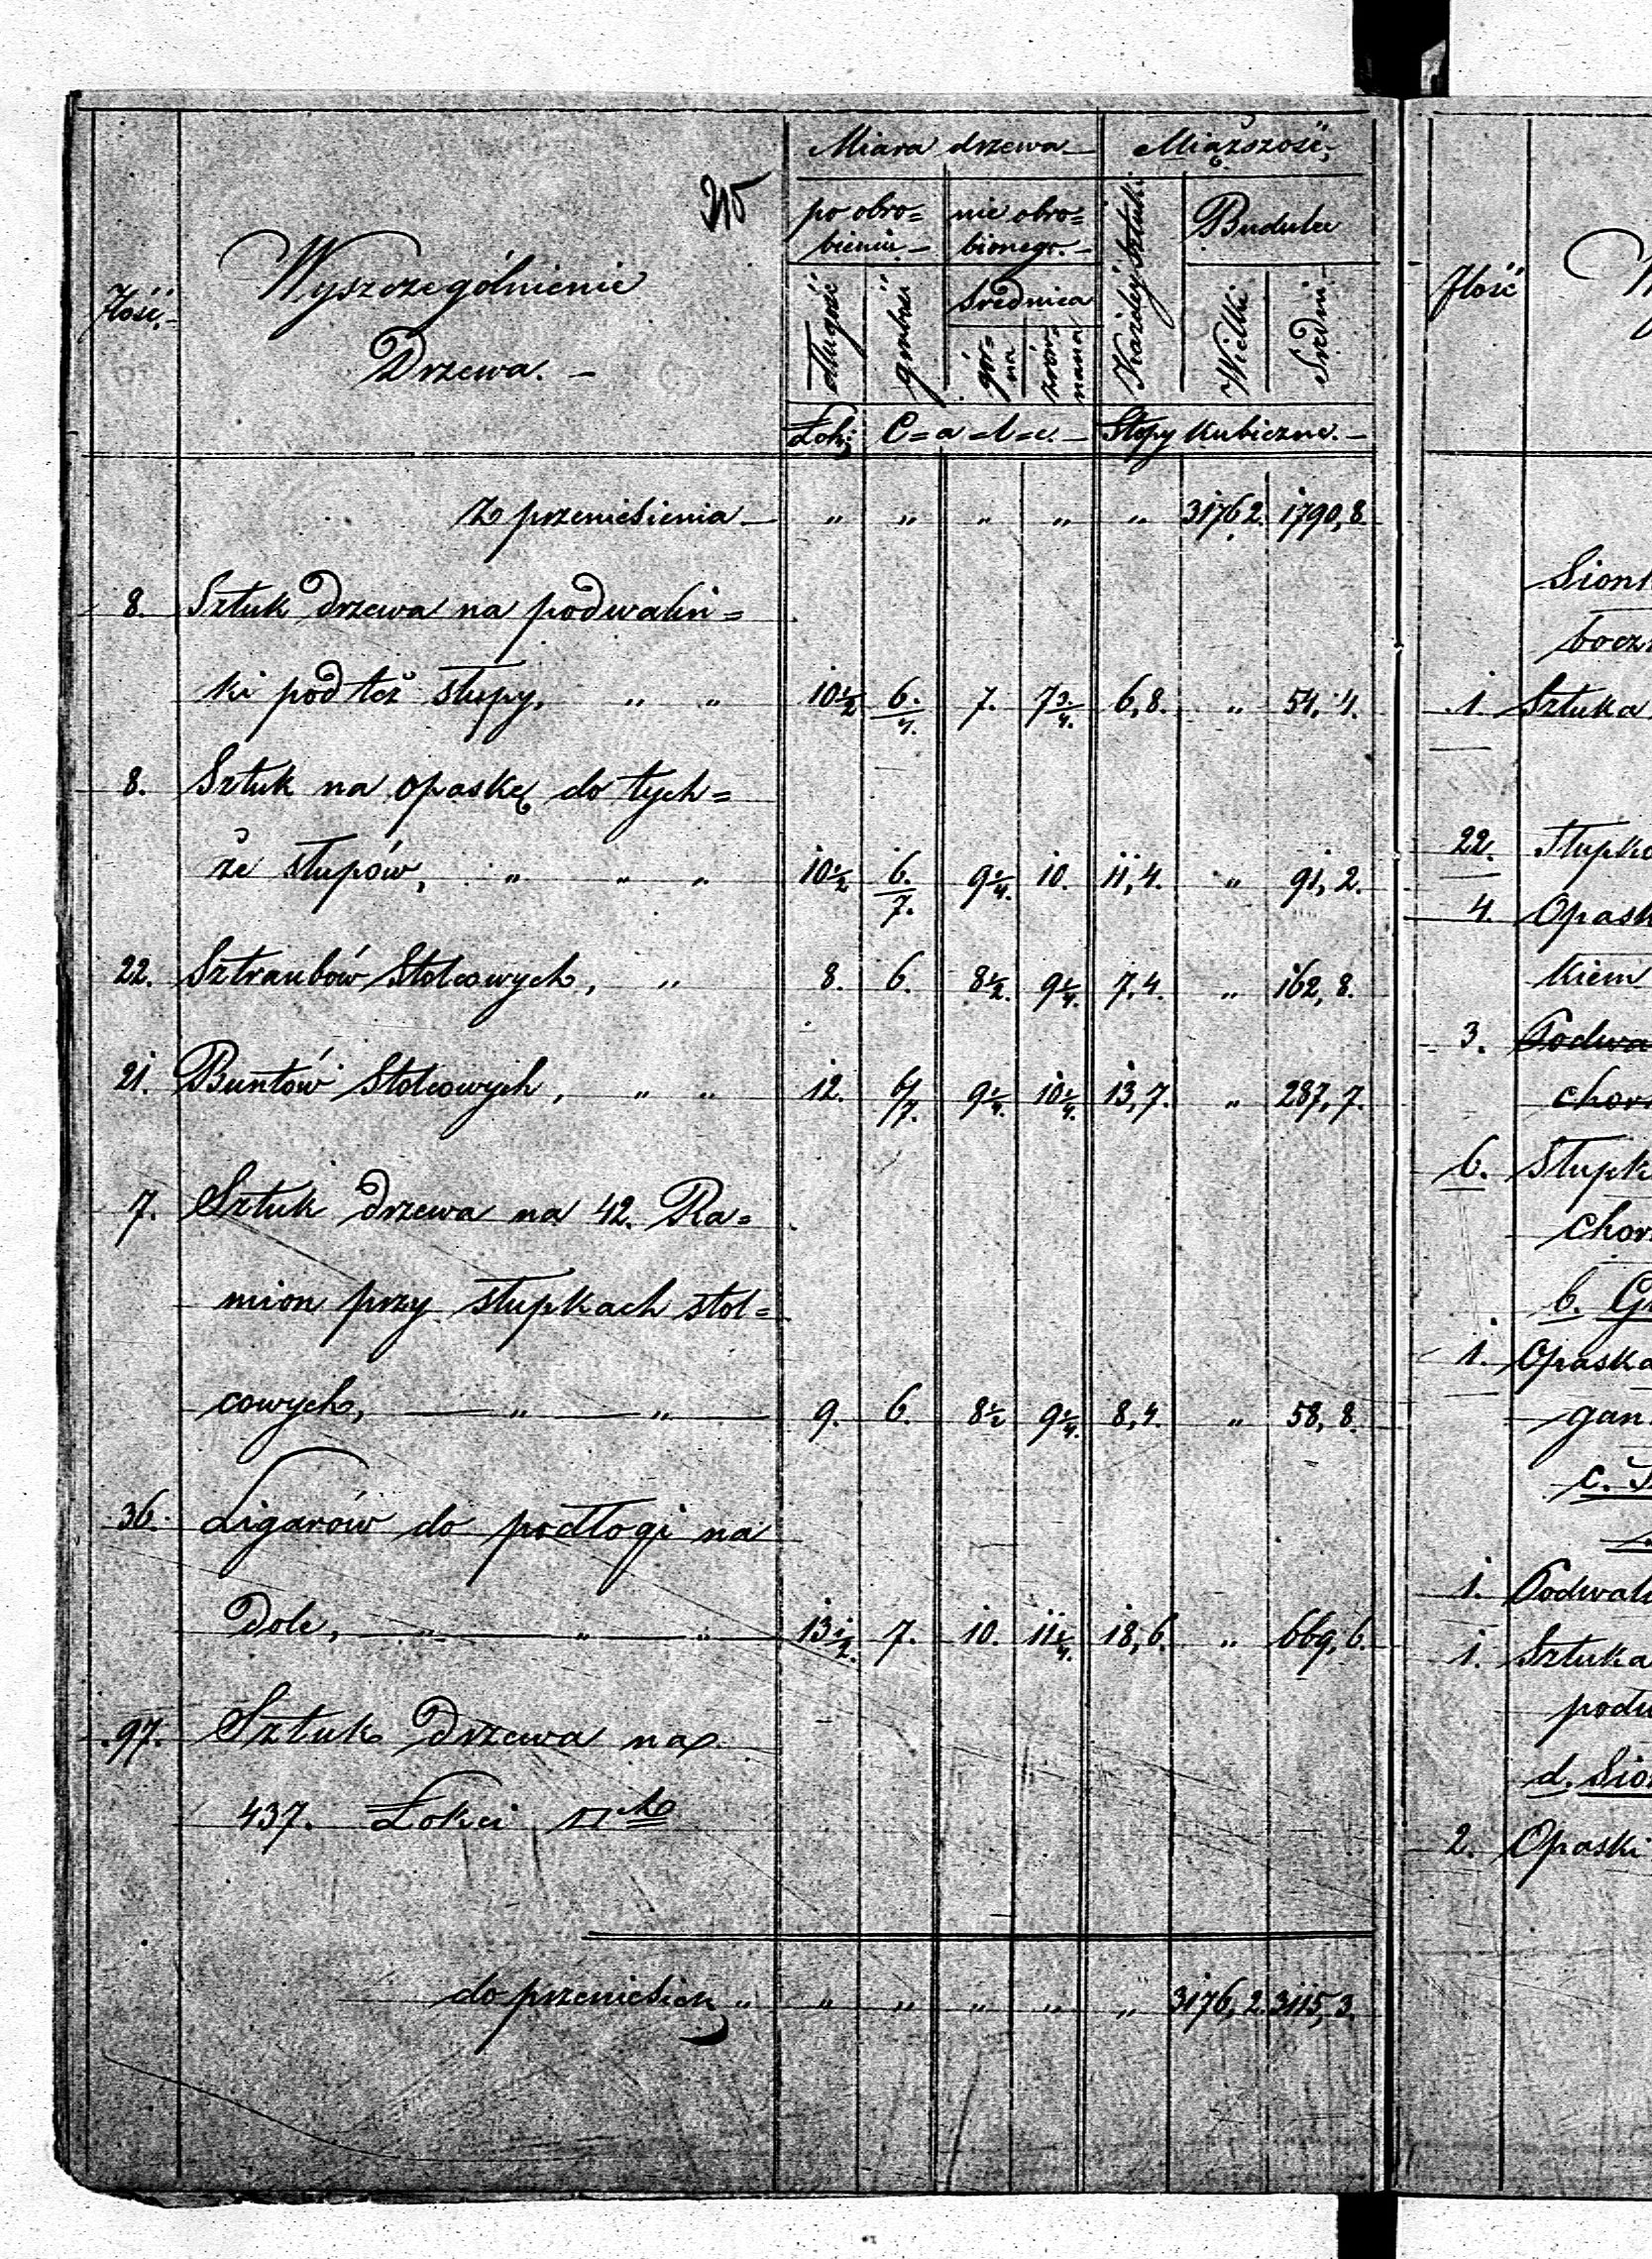 215
Ilość,
Wyszczególnienie
Drzewa. —
Miara drzewa
Miąższość,
po obro=
bieniu.
nie obro=
bionego.
Budulec
Średnica
długość
grubość
gór=
na
zrów=
nana
Każdey Sztuki
Wielki
Średni
Łok:
C=a=l=e.
Stopy Kubiczne.
Z przeniesienia — " " " " " 3176,2. 1790,8.
8. Sztuk drzewa na podwalin=
ki pod też słupy, " " 10½ 6./4. 7. 7¾. 6,8. " 54,4.
8. Sztuk na opaskę do tych=
że słupów, " " " 10½ 6./7. 9¼. 10. 11,4. " 91,2.
22. Sztraubów Stolcowych, " 8. 6. 8½. 9¼. 7,4. " 162,8.
21. Buntów Stolcowych, " " 12. 6/7. 9¼. 10¼. 13,7. " 287,7.
7. Sztuk drzewa na 42. Ra=
mion przy słupkach stol=
cowych, — " — " 9. 6. 8½ 9¼. 8,4. " 58,8.
36. Ligarów do podłogi na
dole, — " — " — " 13½. 7. 10. 11¼. 18,6. " 669,6.
97. Sztuk Drzewa na
437. Łokci
do przeniesien " " " " " " 3176,2. 3115,3.
Ilość
1. Sztuka
22. Słupk
4. Opask
kiem
3.
6. Słupk
b.
1. Opaska
gan
c.
1. Podwal
1. Sztuka
d.
2. Opaski